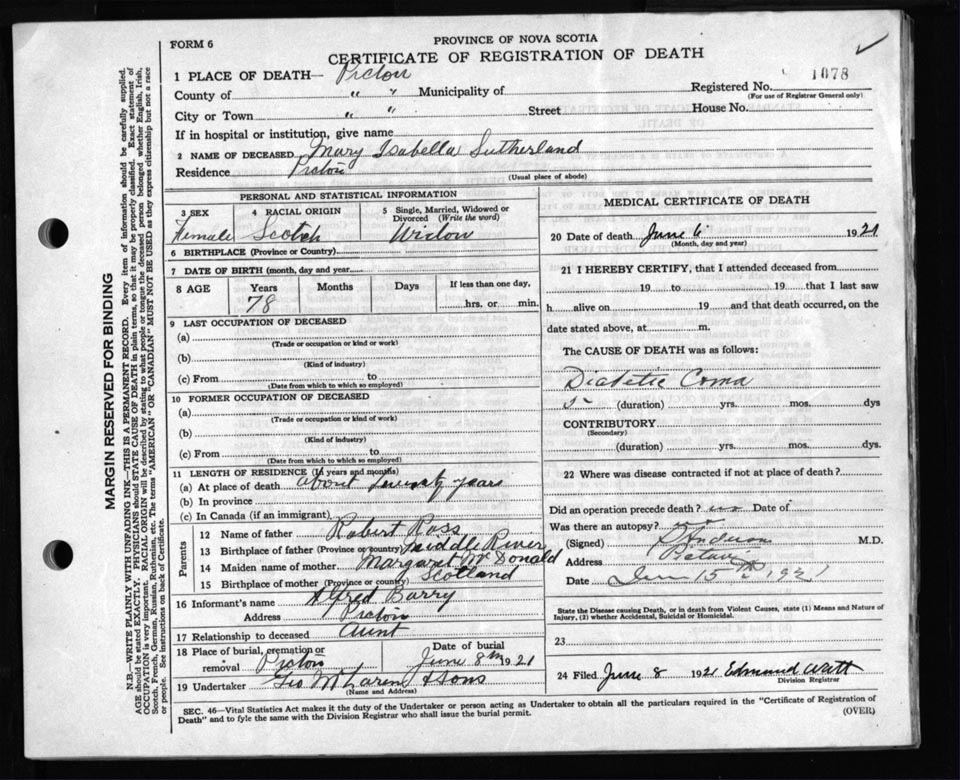 FORM 6
PROVINCE OF NOVA SCOTIA
CERTIFICATE OF REGISTRATION OF DEATH
1078
1 PLACE OF DEATH— Pictou
Registered No.
(For use of Registrar General only)
County of " " Municipality of
City or Town " Street House No.
If in hospital or institution, give name
2 NAME OF DECEASED Mary Isabella Sutherland
Residence Pictou
(Usual place of abode)
PERSONAL AND STATISTICAL INFORMATION
3 SEX 4 RACIAL ORIGIN 5 Single, Married, Widowed or Divorced (Write the word)
Female Scotch Widow
6 BIRTHPLACE (Province or Country)
7 DATE OF BIRTH (month, day and year)
8 AGE Years Months Days If less than one day,
78 hrs. or min.
9 LAST OCCUPATION OF DECEASED
(a)
(Trade or occupation or kind or work)
(b)
(Kind of industry)
(c) From to
(Date from which to which so employed)
10 FORMER OCCUPATION OF DECEASED
(a)
(Trade or occupation or kind of work)
(b)
(Kind of industry)
(c) From to
(Date from which to which so employed)
11 LENGTH OF RESIDENCE (In years and months)
(a) At place of death about twenty years
(b) In province
(c) In Canada (if an immigrant)
Parents
12 Name of father Robert Ross
13 Birthplace of father (Province or country) Middle River
14 Maiden name of mother Margaret McDonald
15 Birthplace of mother (Province or country) Scotland
16 Informant's name Alfred Barry
Address Pictou
17 Relationship to deceased Aunt
18 Place of burial, cremation or removal Pictou
Date of burial June 8th 1921
19 Undertaker Geo McLaren & Sons
(Name and Address)
MEDICAL CERTIFICATE OF DEATH
20 Date of death June 6 1921
(Month, day and year)
21 I HEREBY CERTIFY, that I attended deceased from
19 to 19 that I last saw
h alive on 19 and that death occurred, on the
date stated above, at m.
The CAUSE OF DEATH was as follows:
Diabetic Coma
(duration) yrs. mos. dys
CONTRIBUTORY
(Secondary)
(duration) yrs. mos. dys.
22 Where was disease contracted if not at place of death?
Did an operation precede death? no Date of
Was there an autopsy?
(Signed) M.D.
Address
Date June 15th 1921
State the Disease causing Death, or in death from Violent Causes, state (1) Means and Nature of
Injury, (2) whether Accidental, Suicidal or Homicidal.
23
24 Filed June 8 1921 Edmund Watt
Division Registrar
SEC. 46—Vital Statistics Act makes it the duty of the Undertaker or person acting as Undertaker to obtain all the particulars required in the "Certificate of Registration of
Death" and to fyle the same with the Division Registrar who shall issue the burial permit.
(OVER)
MARGIN RESERVED FOR BINDING
N.B.—WRITE PLAINLY WITH UNFADING INK—THIS IS A PERMANENT RECORD. Every item of information should be carefully supplied.
AGE should be stated EXACTLY. PHYSICIANS should STATE CAUSE OF DEATH in plain terms, so that it may be properly classified. Exact statement of
OCCUPATION is very important. RACIAL ORIGIN will be described by stating to what people or tongue the deceased person belonged whether English, Irish,
Scotch, French, German, Russian, Ruthenian, etc. The terms "AMERICAN" OR "CANADIAN" MUST NOT BE USED as they express citizenship but not a race
or people. See instructions on back of Certificate.